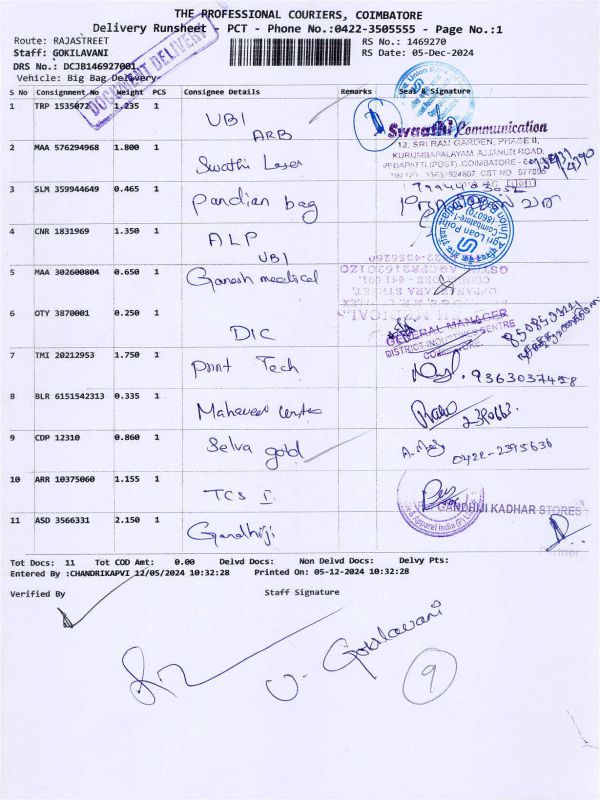 THE PROFESSIONAL COURIERS, COIMBATORE
Delivery Runsheet - PCT - Phone No.:0422-3505555 - Page No.:1
Route: RAJASTREET RS No.: 1469270
Staff: GOKILAVANI RS Date: 05-Dec-2024
DRS No.: DCJB146927001
Vehicle: Big Bag Delivery
DOCUMENT DELIVERY
S No Consignment No Weight PCS Consignee Details Remarks Seal & Signature
1 TRP 1535072 1.235 1 UBI ARB
2 MAA 576294968 1.800 1 Swathi Laser
Swaathi Communication
12, SRI RAM GARDEN, PHASE II,
KURUMBAPALAYAM, AJJANUR ROAD,
VEDAPATTI (POST) COIMBATORE
3 SLM 359944649 0.465 1 Pandian bag
4 CNR 1831969 1.350 1 ALP UBI
5 MAA 302600804 0.650 1 Ganesh medical
6 OTY 3870001 0.250 1 DIC
GENERAL MANAGER
DISTRICT INDUSTRIES CENTRE
COIMBATORE.
7 TMI 20212953 1.750 1 Print Tech 9363037458
8 BLR 6151542313 0.335 1 2390663.
9 CDP 12310 0.860 1 Selva gold 0422-2395636
10 ARR 10375060 1.155 1 TCS I.
GANDHIJI KADHAR STORES
11 ASD 3566331 2.150 1 Gandhiji
Partner
Tot Docs: 11 Tot COD Amt: 0.00 Delvd Docs: Non Delvd Docs: Delvy Pts:
Entered By :CHANDRIKAPVI 12/05/2024 10:32:28 Printed On: 05-12-2024 10:32:28
Verified By Staff Signature
U. Gokilavani
9